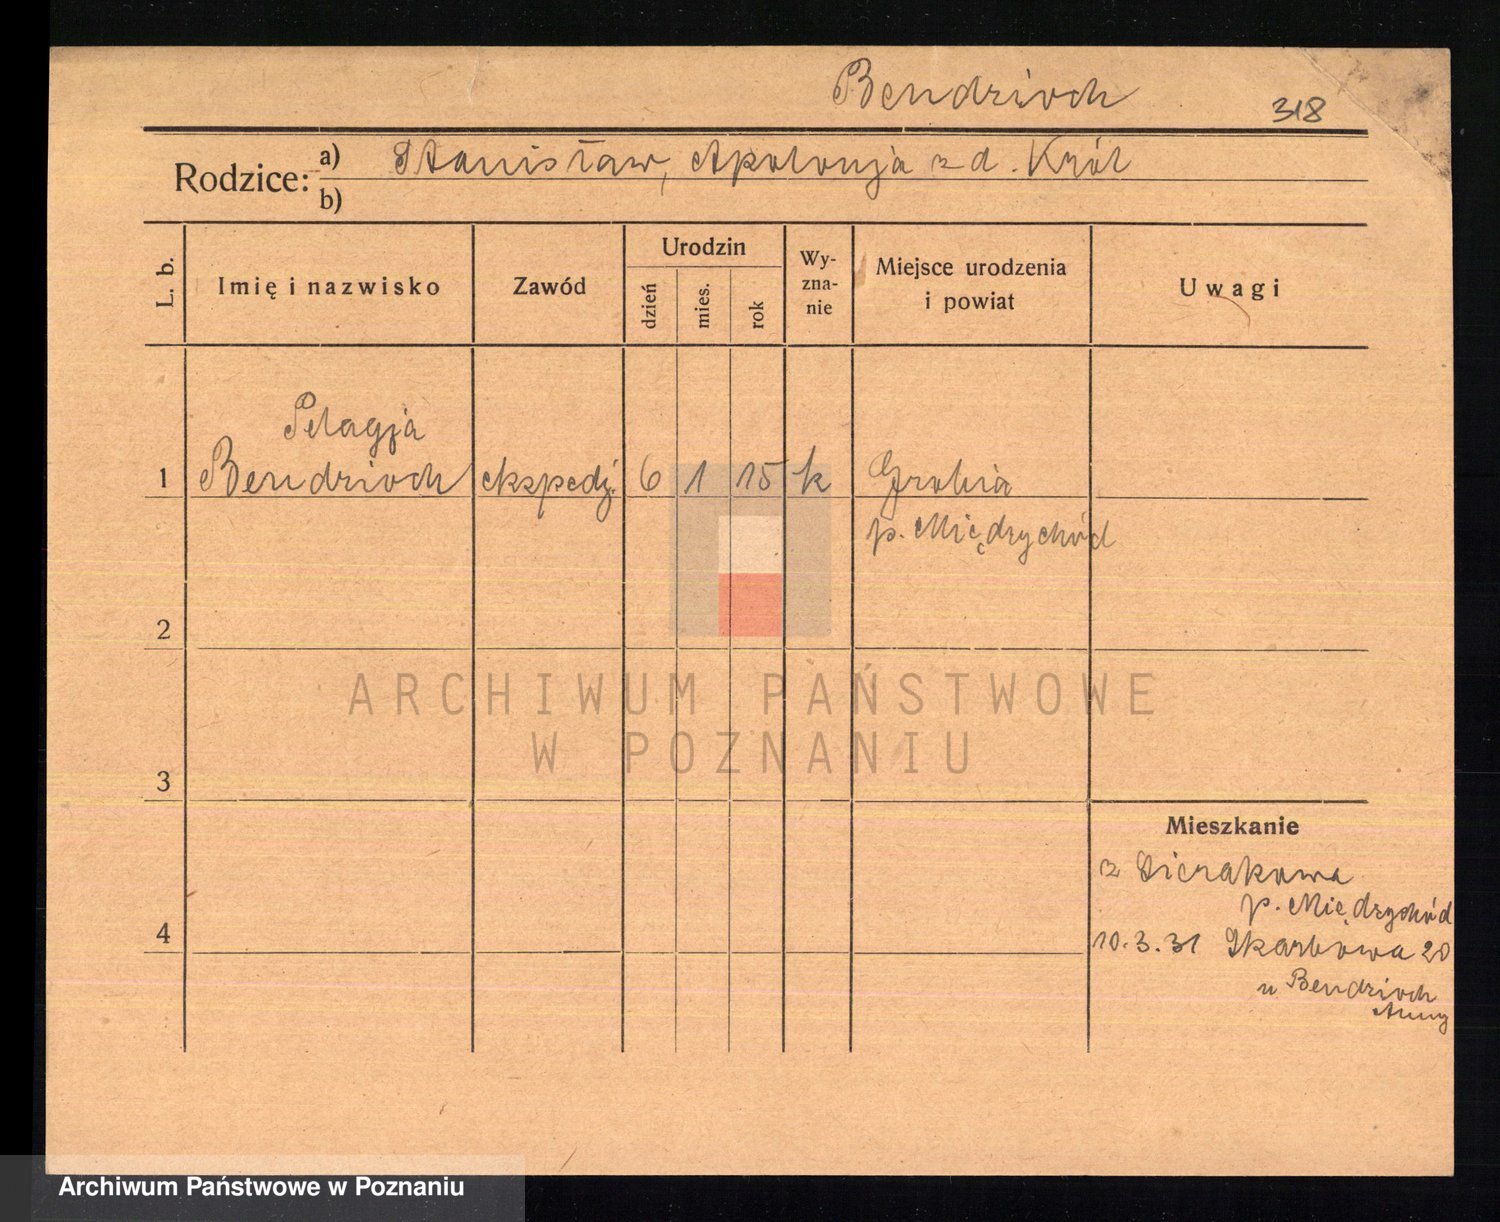 Bendrioch
318
Rodzice: a) Stanisław, Apolonja z d. Król
b)
L. b.
Imię i nazwisko
Zawód
Urodzin
dzień
mies.
rok
Wy-
zna-
nie
Miejsce urodzenia
i powiat
Uwagi
Pelagja
1 Bendrioch ekspedj. 6 1 15 k Grobia
p. Międrychód
2
3
4
Mieszkanie
z Sierakowa
p. Międrychód
10.3.31 Skarbowa 20
u Bendrioch
Anny
ARCHIWUM PAŃSTWOWE
W POZNANIU
Archiwum Państwowe w Poznaniu